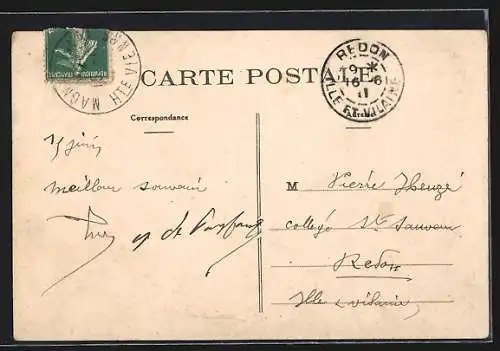 REPUBLIQUE FRANÇAISE
HTE VIENNE
MAGN
CARTE POSTALE
REDON
16-6
11
ILLE ET VILAINE
Correspondance
15 juin
meilleur souvenir
de
M Pierre
collège St Sauveur
Redon
Ille & Vilaine